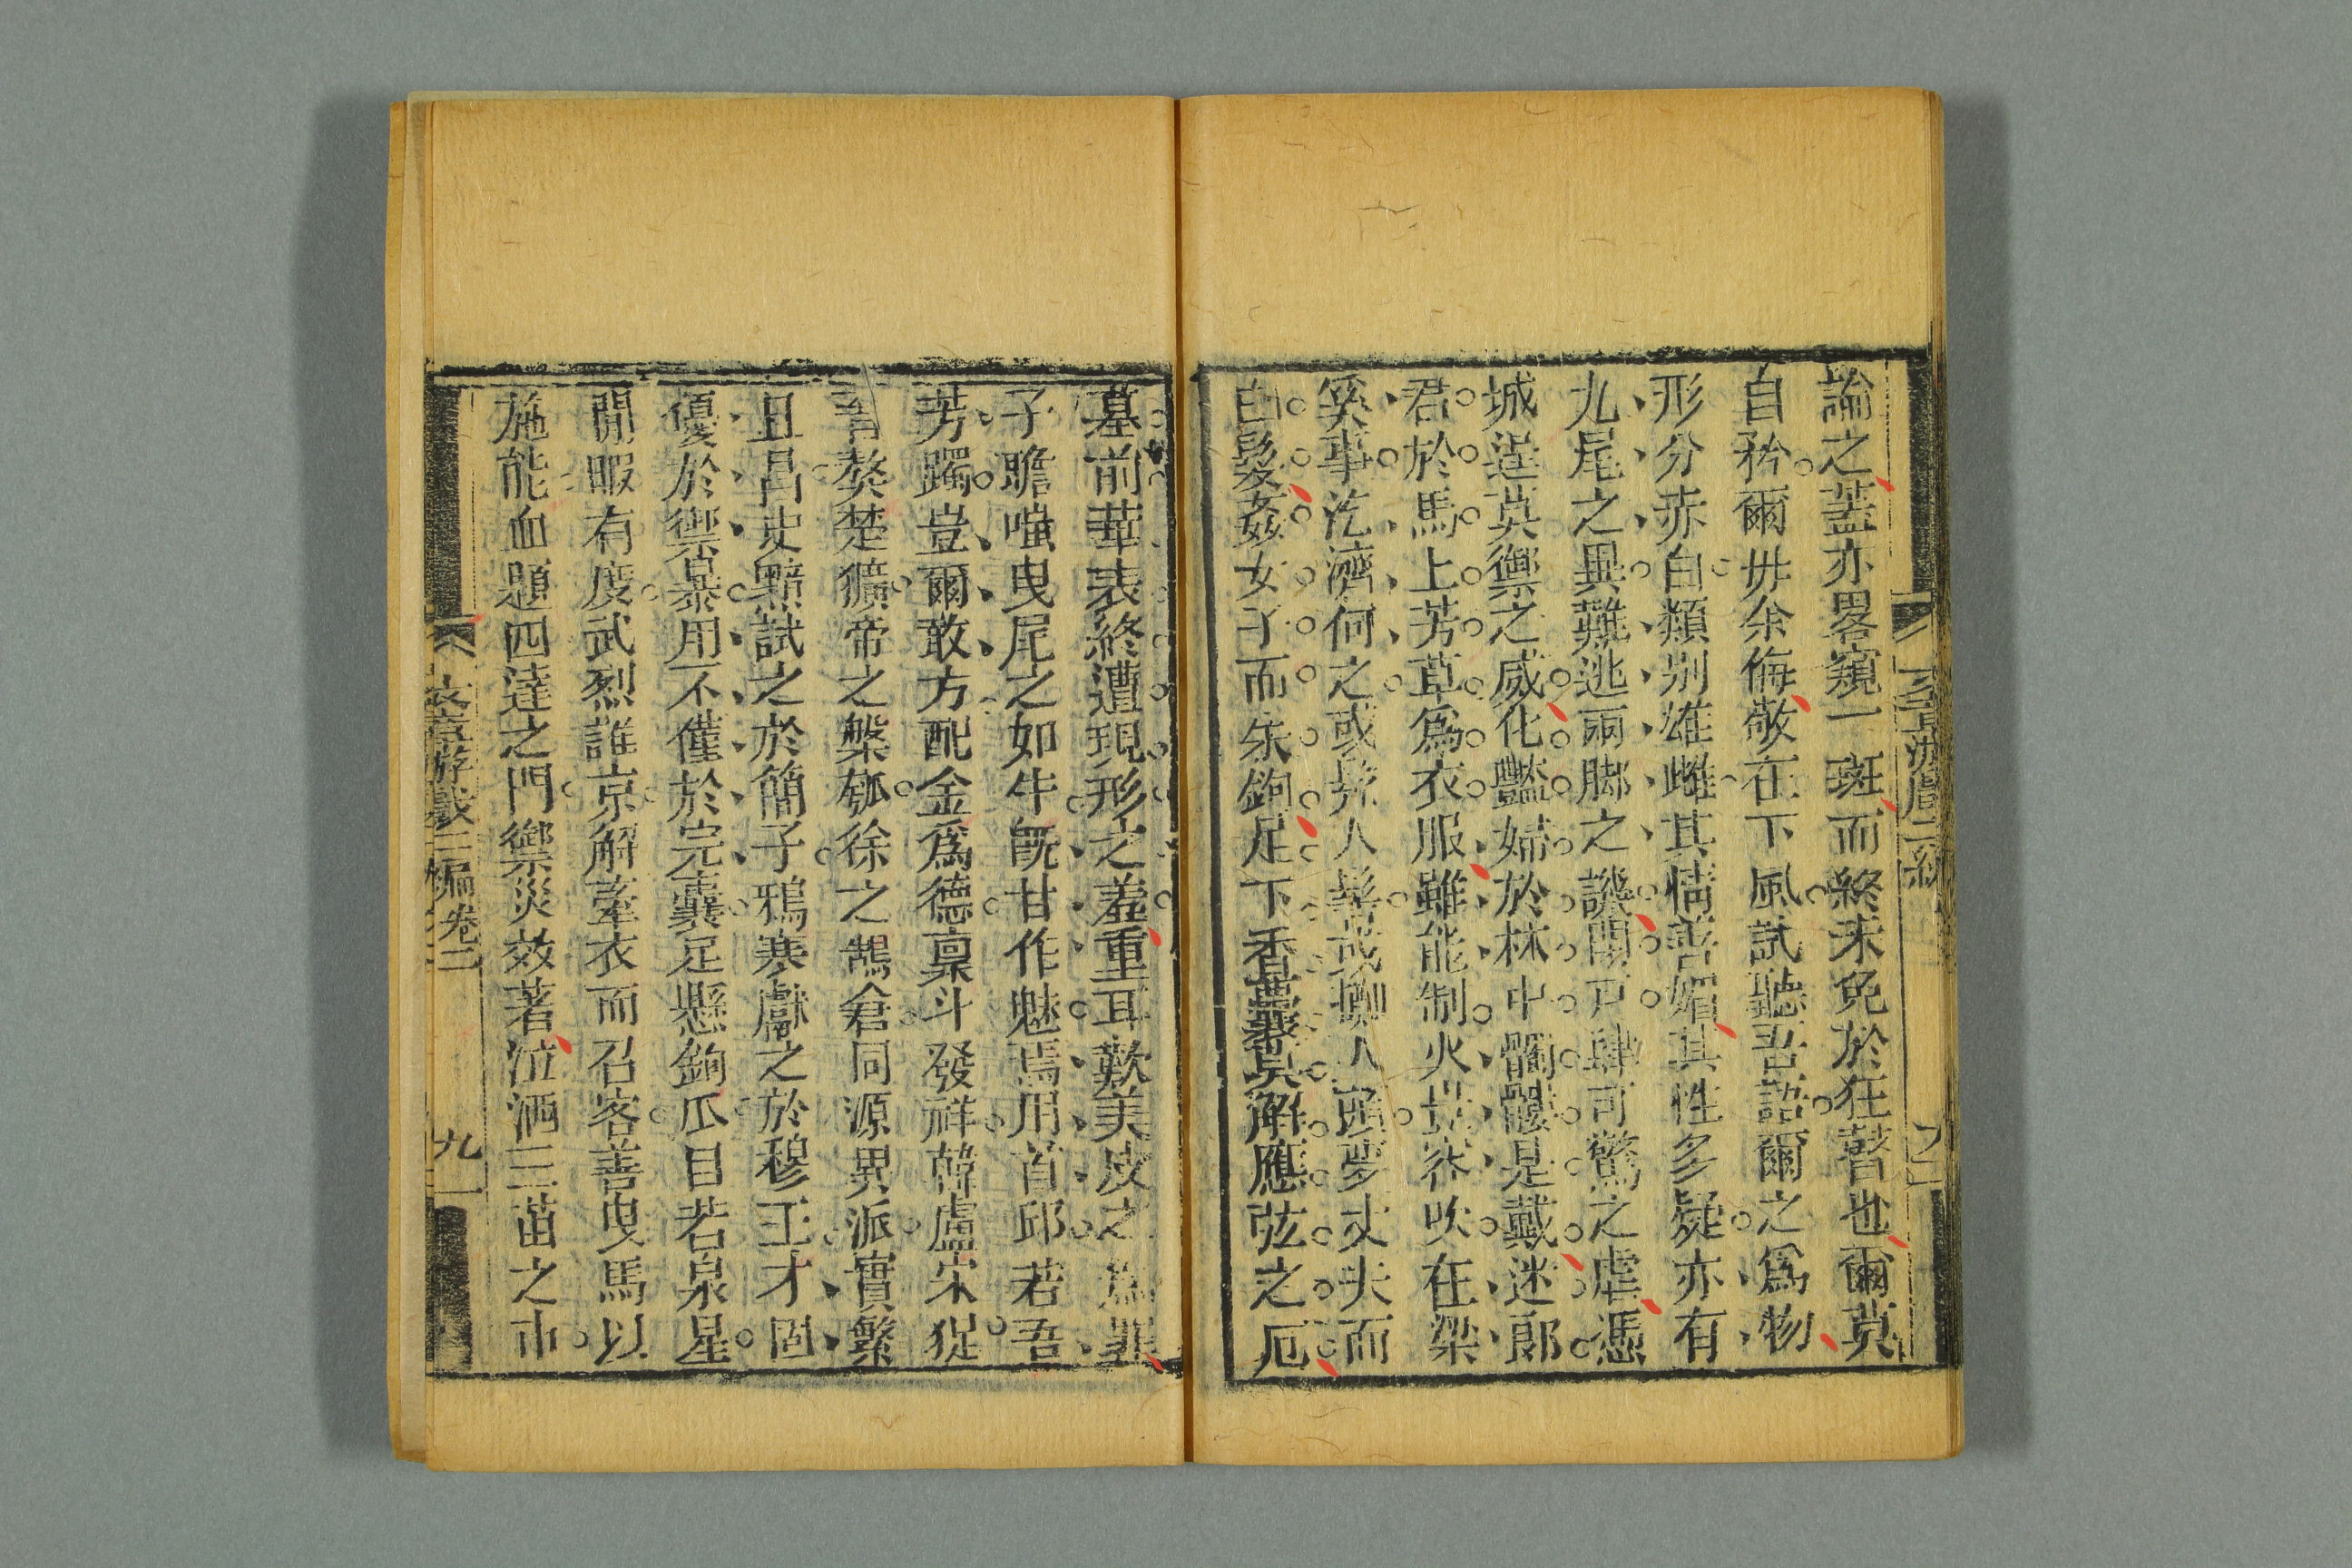 論之蓋亦畧窺一斑而終未免於狂瞽也爾莫
自矜爾毋余侮敬在下風試聽吾語爾之爲物
形分赤白類别雄雌其情善媚其性多疑亦有
九尾之異難逃兩脚之譏閉戸肆可驚之虐憑
城逞莫禦之威化豔婦於林中髑髏是戴迷郎
君於馬上芳草爲衣服雖能制火豈容吹在梁
奚事汔濟何之或 人 或擲人 夢丈夫而
白髮姦女子而朱鉤足下香叢莫解應弦之厄
墓前華表終遭現形之羞重耳歎美皮之爲罪
子瞻嗤曳尾之如牛旣甘作魅焉用首邱若吾
芳躅豈爾敢方配金爲德稟斗發祥韓盧宋猉
晉獒楚獷帝之槃瓠徐之鵠倉同源異派實繁
且昌吏黠試之於簡子鴉寒獻之於穆王才固
優於禦暴用不僅於完囊足懸鉤爪目若泉星
閒暇有度武烈誰京解牽衣而召客善曳馬以
施能血題四達之門禦災效著泣洒三苗之市
文章游戲二編 卷二 九